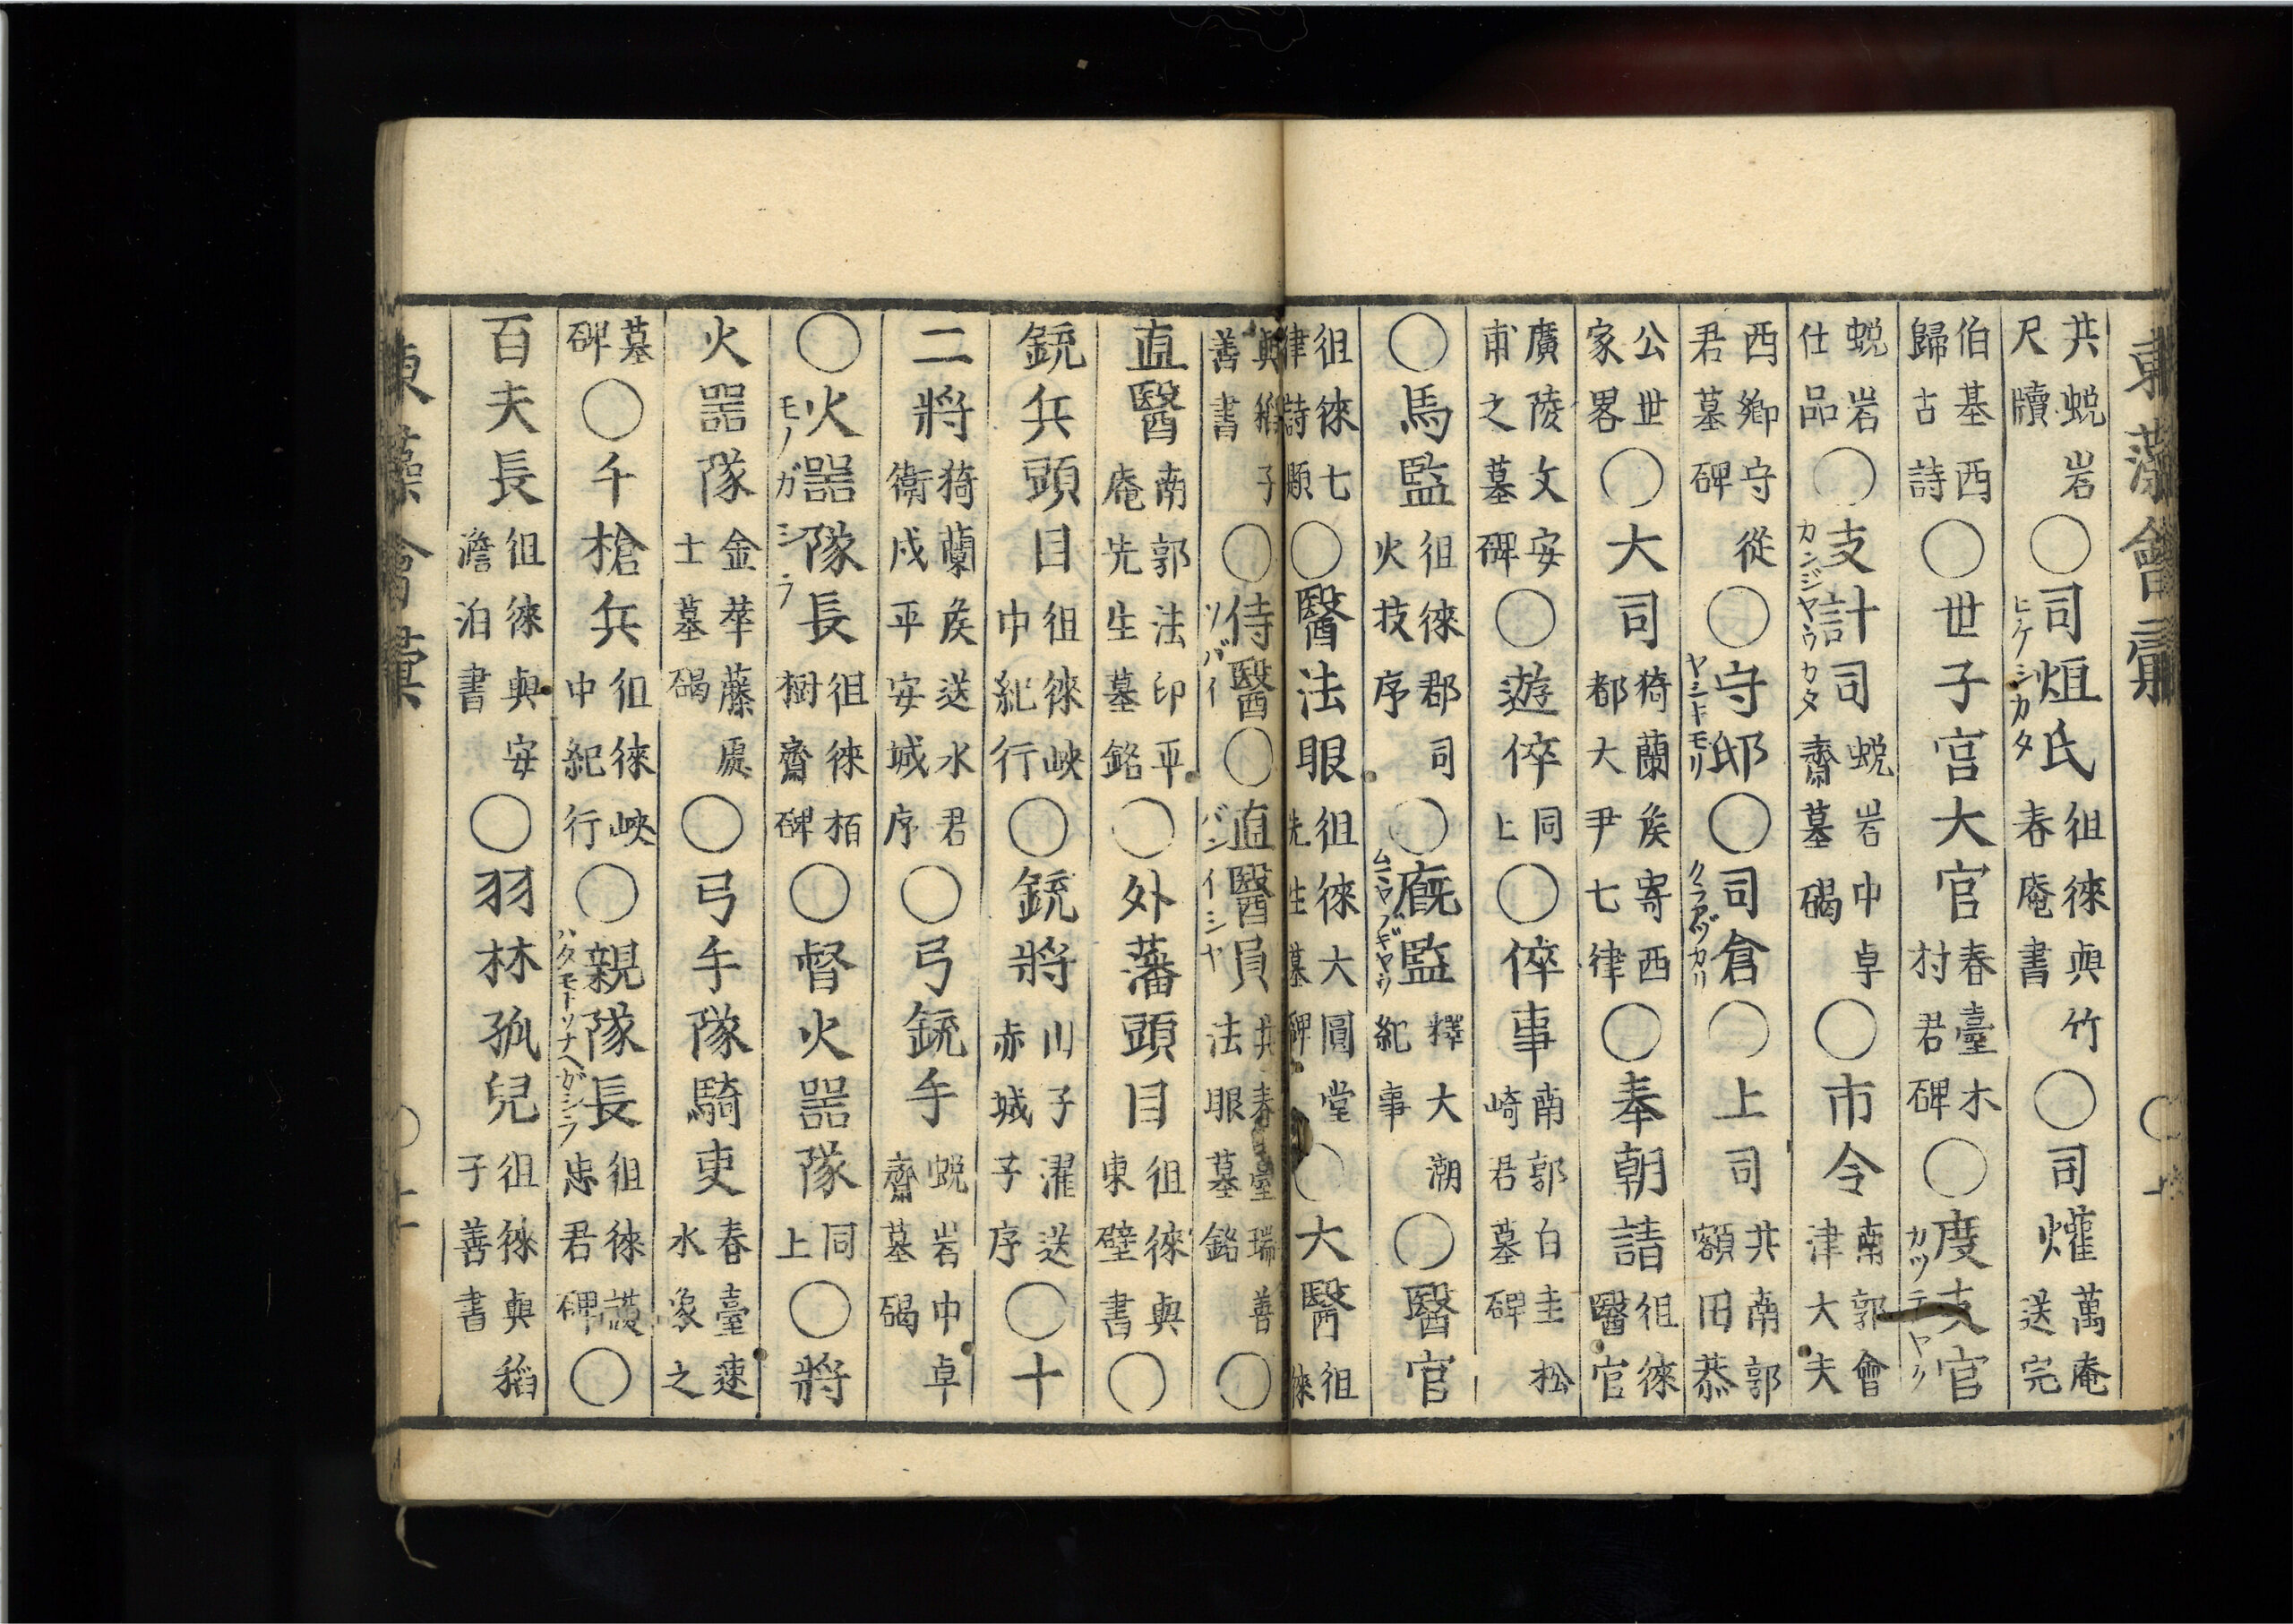 共蛻岩尺牘○司烜氏ヒケシカタ徂徠與竹春庵書○司爟萬庵送完
伯基西歸古詩○世子宮大官春臺木村君碑○度支官カツテヤク
蛻岩仕品○支計司カンジヤウカタ蛻岩中卓齋墓碣○市令南郭會津大夫
西郷守從君墓碑○守邸ヤシキモリ○司倉クラアヅカリ○上司共南郭額田恭
公世家畧○大司猗蘭矦寄西都大尹七律○奉朝請徂徠醫官
廣陵文安甫之墓碑○遊倅同上○倅事南郭白圭松崎君墓碑
○馬監徂徠郡司火技序○廐監ムマヤブギヤウ釋大潮紀事○醫官
徂徠七律詩題○醫法眼徂徠大圓堂先生墓碑○大醫徂徠
與稻子善書○侍醫ソバイ○直醫員バンイシヤ共春臺瑞善法眼墓銘○
直醫南郭法印平庵先生墓銘○外藩頭目徂徠與東壁書○
銃兵頭目徂徠峽中紀行○銃將川子濯送赤城子序○十
二將猗蘭矦送水衛戍平安城序君○弓銃手蛻岩中卓齋墓碣
○火器隊長モノガシラ徂徠栢樹齋碑○督火器隊同上○將
火器隊金華藤處士墓碣○弓手隊騎吏春臺速水象之
墓碑○千槍兵徂徠峽中紀行○親隊長ハタモトソナヘガシラ徂徠護忠君碑○
百夫長徂徠與安澹泊書○羽林孤兒徂徠與稻子善書